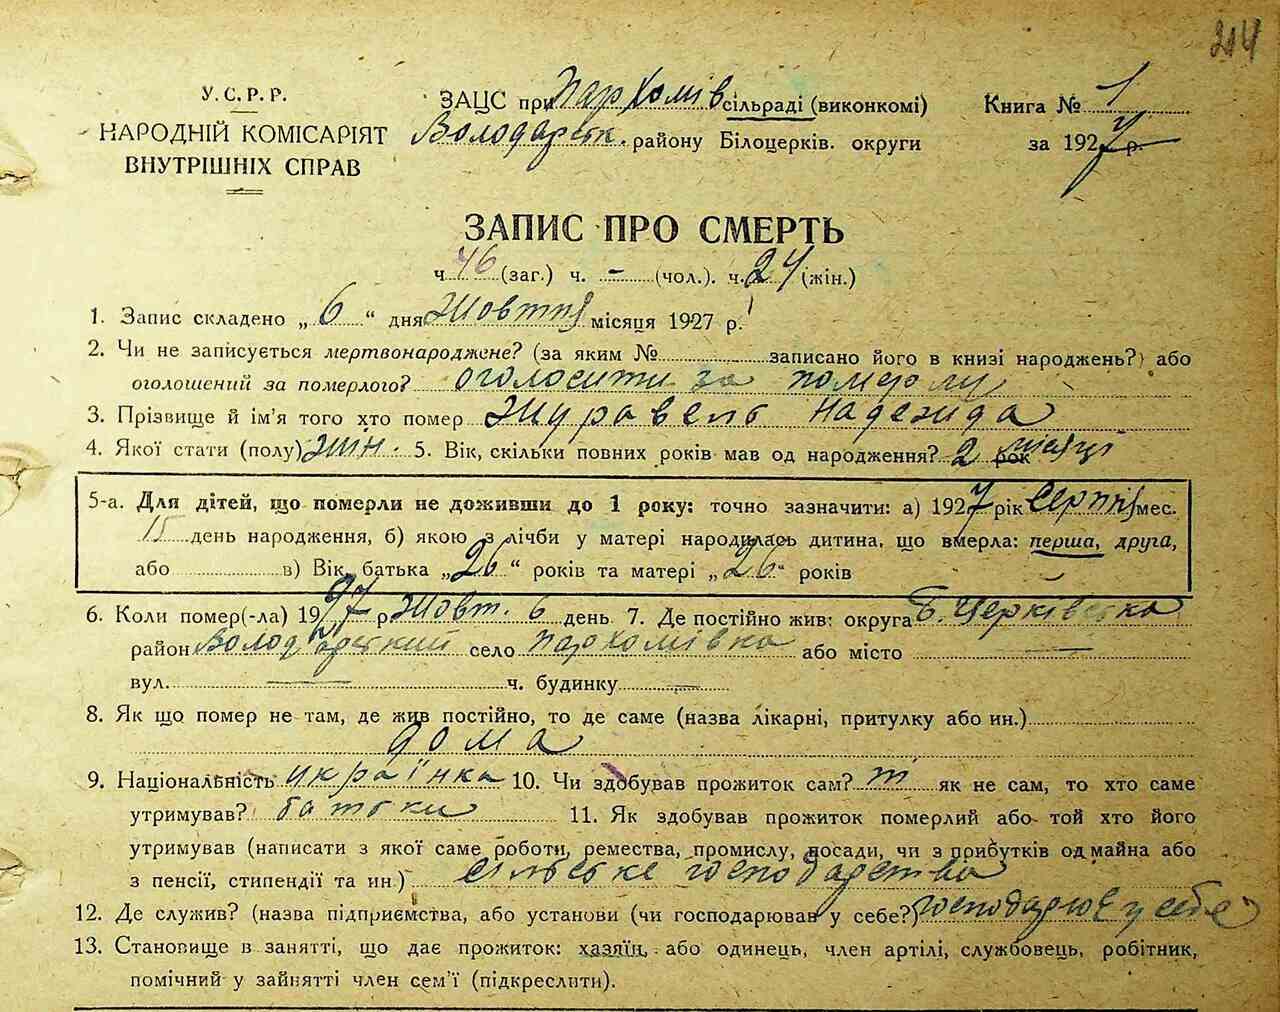 214
У.С.Р.Р.
НАРОДНІЙ КОМІСАРІЯТ
ВНУТРІШНІХ СПРАВ
ЗАЦС при Пархомів сільраді (виконкомі)
Володарськ. району Білоцерків. округи
Книга № 1
за 1927 р.
ЗАПИС ПРО СМЕРТЬ
ч. 46 (заг.) ч. - (чол.). ч. 24 (жін.)
1. Запис складено „ 6 “ дня Жовтня місяця 1927 р.
2. Чи не записується мертвонароджене? (за яким № записано його в книзі народжень?) або
оголошений за померлого? оголосити за померлу
3. Прізвище й ім'я того хто помер Журавель Надежида
4. Якої стати (полу) жін. 5. Вік, скільки повних років мав од народження? 2 рок місяці
5-а. Для дітей, що померли не доживши до 1 року: точно зазначити: а) 1927 рік Серпня мес.
15 день народження, б) якою з лічби у матері народилась дитина, що вмерла: перша, друга,
або в) Вік батька „ 26 “ років та матері „ 26 “ років
6. Коли помер(-ла) 1927 р Жовт. 6 день 7. Де постійно жив: округа Б. Церківська
район Володарський село Пархомівка або місто
вул. ч. будинку
8. Як що помер не там, де жив постійно, то де саме (назва лікарні, притулку або ин.)
дома
9. Національність українка 10. Чи здобував прожиток сам? ні як не сам, то хто саме
утримував? батьки 11. Як здобував прожиток померлий або той хто його
утримував (написати з якої саме роботи, ремества, промислу, посади, чи з прибутків од майна або
з пенсії, стипендії та ин.) сільське господарство
12. Де служив? (назва підприємства, або установи (чи господарював у себе?) господарює у себе
13. Становище в занятті, що дає прожиток: хазяїн, або одинець, член артілі, службовець, робітник,
помічний у зайнятті член сем'ї (підкреслити).